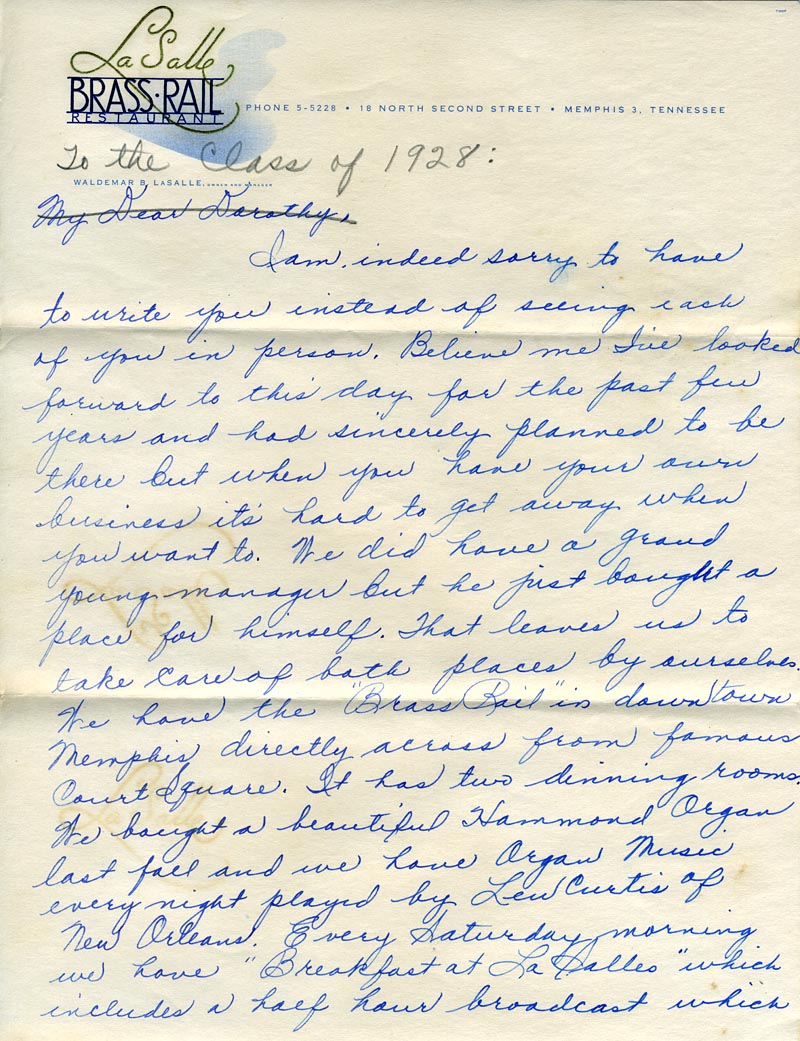 La Salle
BRASS·RAIL
RESTAURANT
PHONE 5-5228 • 18 NORTH SECOND STREET • MEMPHIS 3, TENNESSEE
To the Class of 1928:
WALDEMAR B. LASALLE, OWNER AND MANAGER
My Dear Dorothy,
I am indeed sorry to have
to write you instead of seeing each
of you in person. Believe me I've looked
forward to this day for the past few
years and had sincerely planned to be
there but when you have your own
business it's hard to get away when
you want to. We did have a grand
young manager but he just bought a
place for himself. That leaves us to
take care of both places by ourselves.
We have the "Brass Rail" in downtown
Memphis directly across from famous
Court Square. It has two dinning rooms.
We bought a beautiful Hammond Organ
last fall and we have Organ Music
every night played by Lew Curtis of
New Orleans. Every Saturday morning
we have "Breakfast at La Salles" which
includes a half hour broadcast which